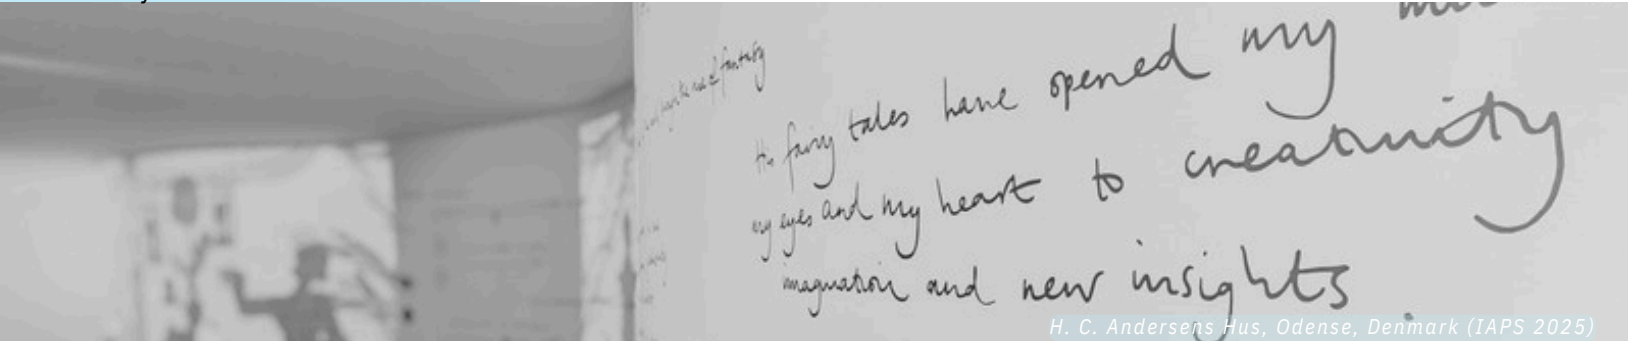 of fantasy
fairy tales have opened my
my eyes and my heart to creativity
imagination and new insights
H. C. Andersens Hus, Odense, Denmark (IAPS 2025)